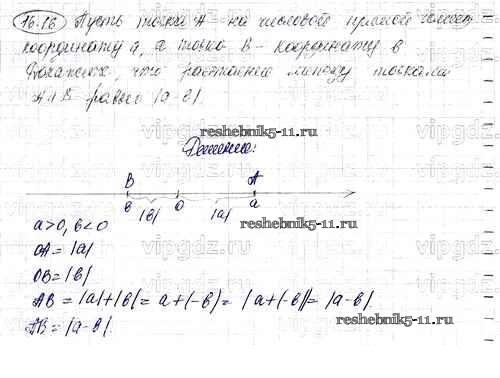 16.16 Пусть точка A - на числовой прямой имеет
координату a, а точка B - координату в
Докажем, что расстояние между точками
A и B равно |a-в|.
vipgdz.ru
reshebnik5-11.ru
Решение:
B A
в |в| 0 |a| a
reshebnik5-11.ru
a>0, в<0
OA = |a|
OB = |в|
AB = |a|+|в| = a+(-в) = |a+(-в)| = |a-в|
AB = |a-в|.
reshebnik5-11.ru